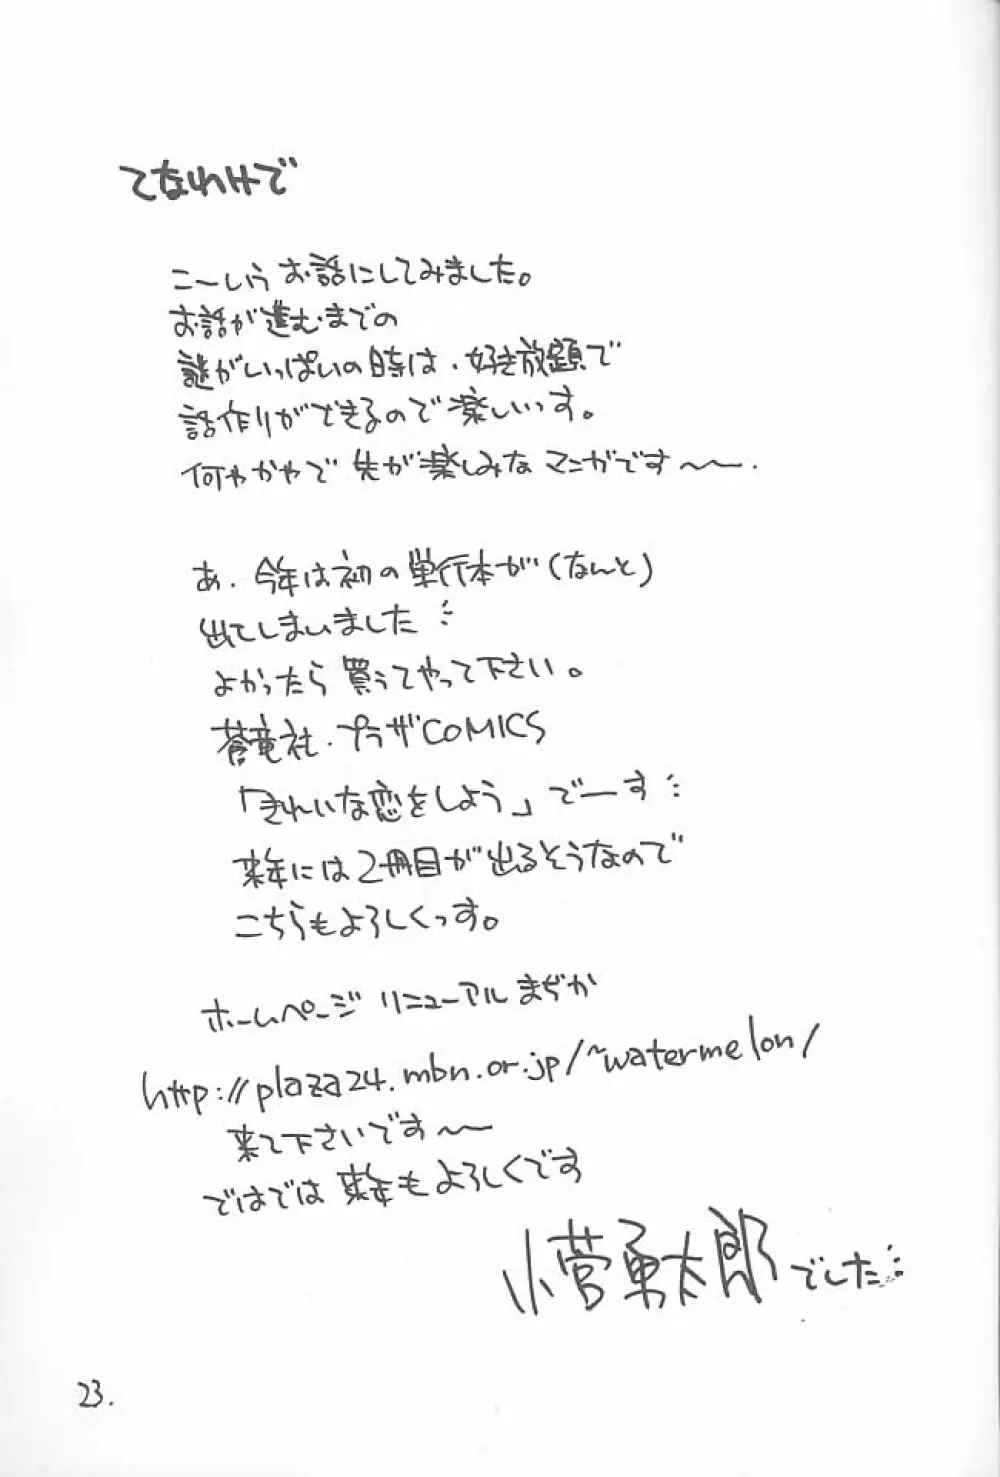 てなわけで
こーいうお話にしてみました。
お話が進むまでの
謎がいっぱいの時は、好き放題で
話作りができるので楽しいっす。
何やかやで先が楽しみなマンガです〜〜.
あ、今年は初の単行本が(なんと)
出てしまいました…
よかったら買ってやって下さい。
蒼竜社・プラザCOMICS
「きれいな恋をしよう」でーす…
来年には2冊目が出るそうなので
こちらもよろしくっす。
ホームページリニューアルまぢか
http://plaza24.mbn.or.jp/~watermelon/
来て下さいです〜〜
ではでは来年もよろしくです
小菅勇太郎でした…
23.